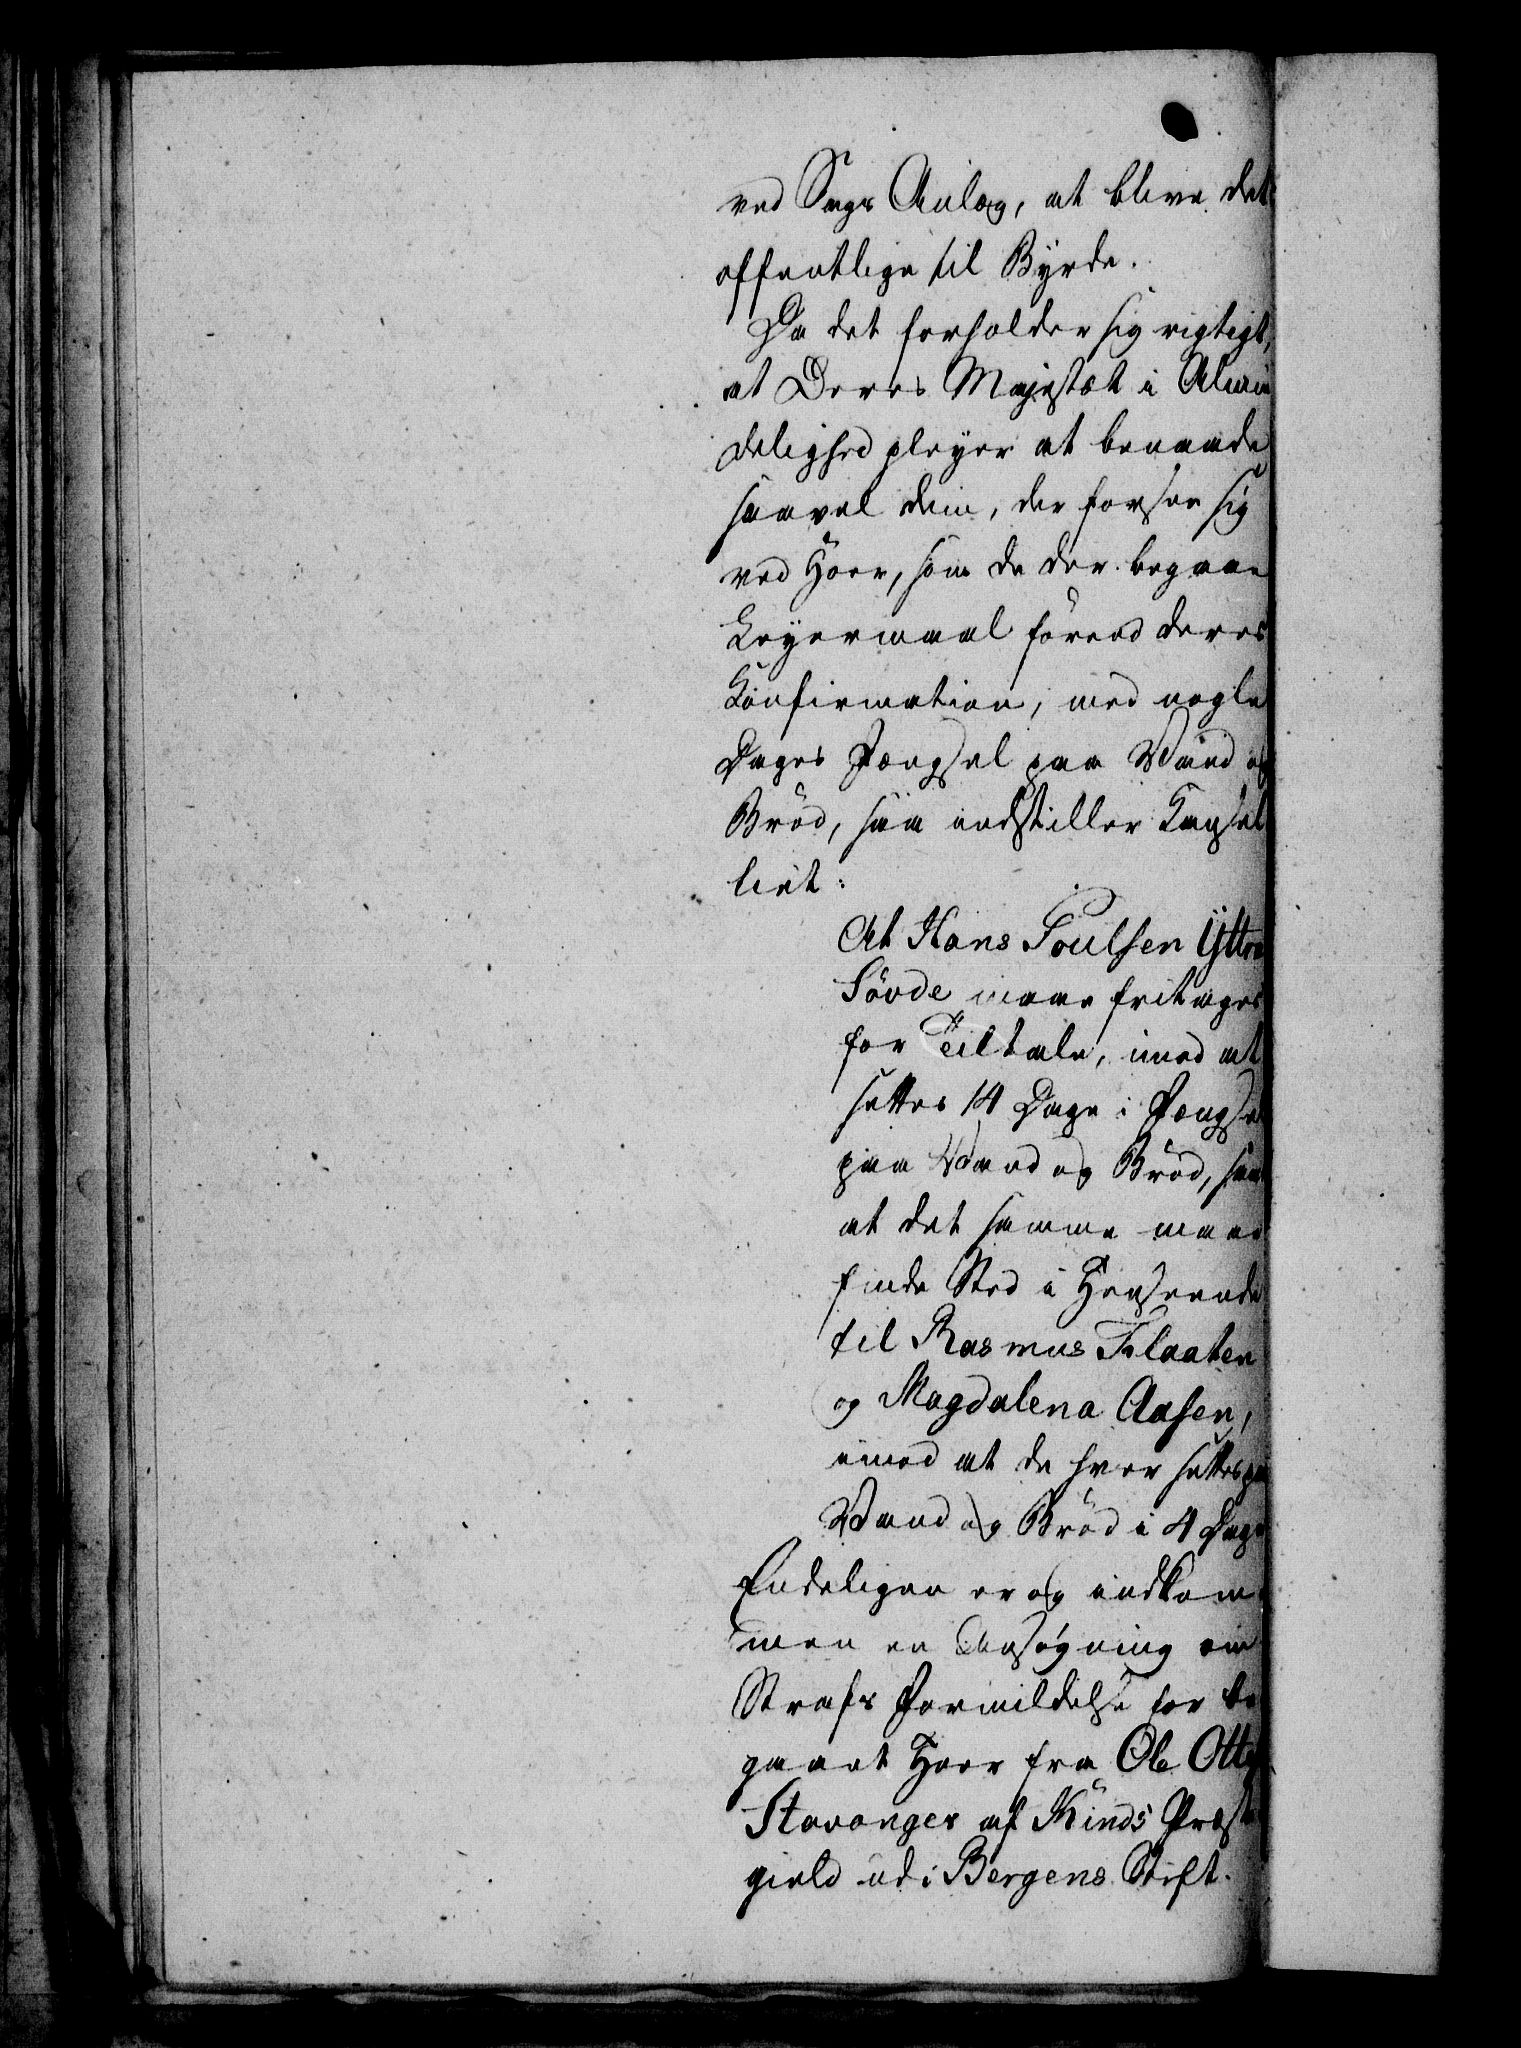 ved Sags Anlæg, at blive det
offentlige til Byrde.
Da det forholder sig rigtigt,
at Deres Majestæt i Almin
delighed pleyer at benaade
saavel dem, der forsee sig
ved Hoer, som de der begaae
Leyermaal förend deres
Confirmation, med nogle
Dages Fængsel paa Vand og
Bröd, saa indstiller Cancel
liet:
At Hans Poulsen Yttre
Sövde maae fritages
for Tiltale, imod at
settes 14 Dage i Fængsel
paa Vand og Bröd, samt
at det samme maae
finde Sted i Henseende
til Rasmus Klaaten
og Magdalena Aasen,
imod at de hver settes paa
Vand og Bröd i 4 Dage
Endeligen er og indkom
men en Ansøgning om
Strafs Formildelse for be
gaaet Hoer fra Ole Otte
Stavanger af Kinds Præste
gield udi Bergens Stift.